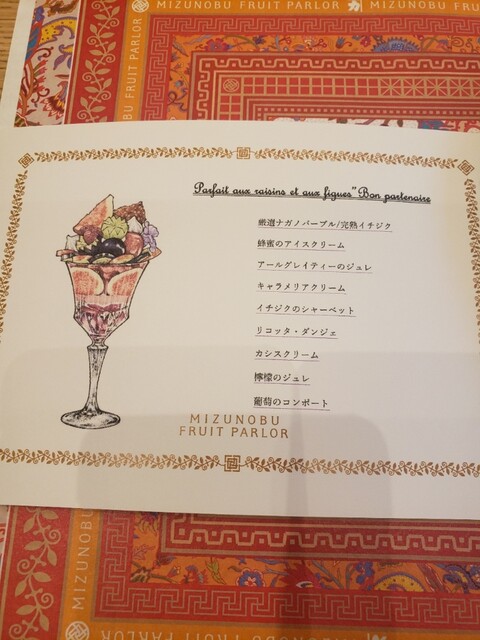 MIZUNOBU FRUIT PARLOR
MIZUNOBU FRUIT
MIZUNOBU FRUIT PARLOR
Parfait aux raisins et aux figues"Bon partenaire
厳選ナガノパープル/完熟イチジク
蜂蜜のアイスクリーム
アールグレイティーのジュレ
キャラメリアクリーム
イチジクのシャーベット
リコッタ・ダンジェ
カシスクリーム
檸檬のジュレ
葡萄のコンポート
MIZUNOBU
FRUIT PARLOR
MIZUNOBU
MIZUNOBU FRUIT PARLOR